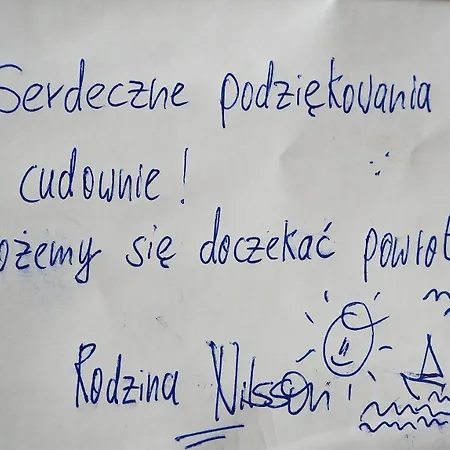 Serdeczne podziękowania
cudownie!
ożemy się doczekać powrot
Rodzina Nilsson